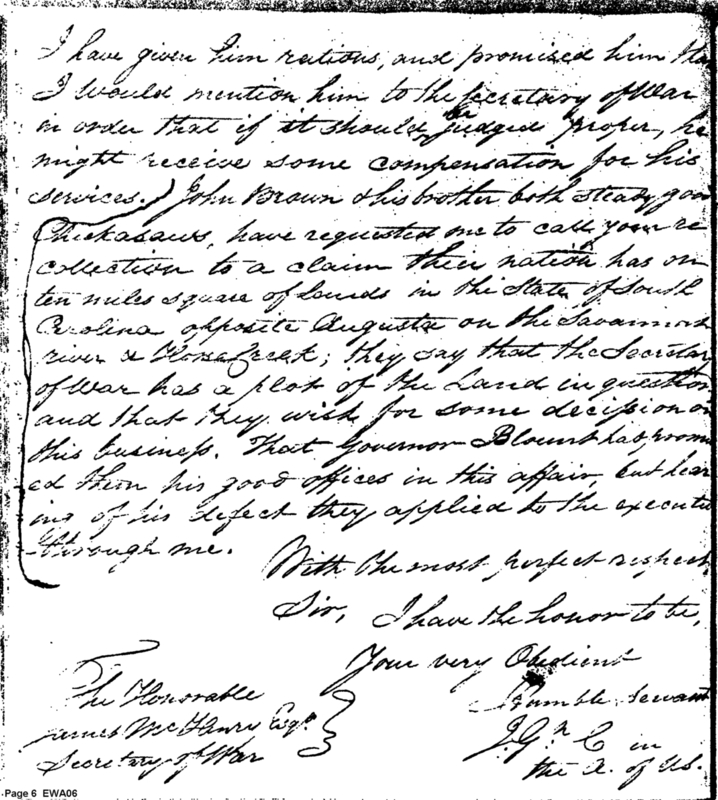 I have given him rations, and promised him tha
I would mention him to the Secretary of War
in order that if it should be judged proper, he
might receive some compensation for his
services. John Brown & his brother both steady goo
Chickasaws, have requested me to call your re
collection to a claim their nation has on
ten miles square of Lands in the State of South
Carolina opposite Augusta on the Savannah
river & Horse Creek; they say that the Secretar
of War has a plot of the Land in question
and that they wish for some decission on
this business. That Governor Blount has prom
ed them his good offices in this affair, but hear
ing of his defect they applied to the executi
through me.
With the most perfect respect
Sir, I have the honor to be,
Your very Obedient
Humble servant
J. G. n C in
the A. of US.
The Honorable
James McHenry Esqr.
Secretary of War
Page 6 EWA06